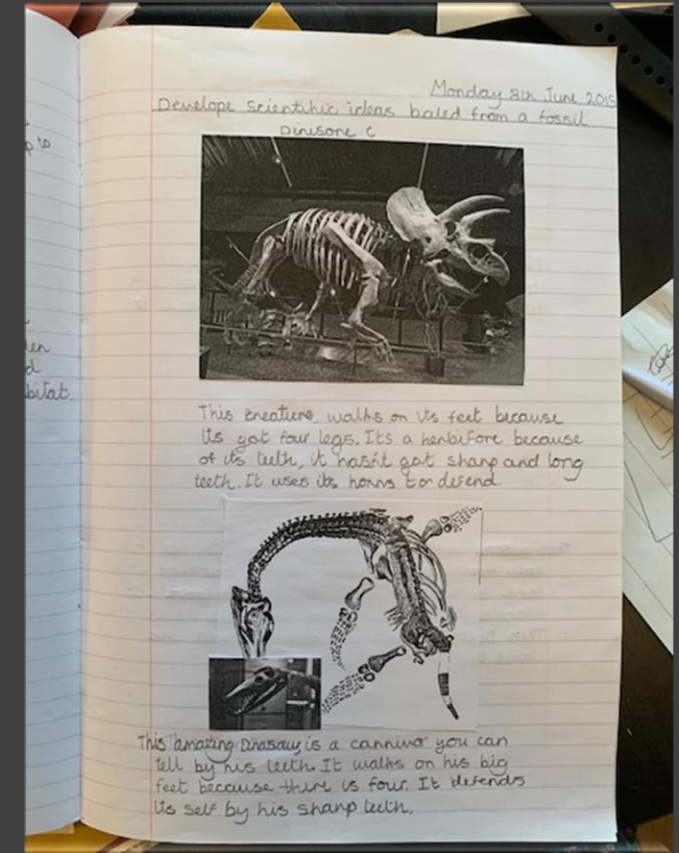 Monday 8th June 2015
Develope scientific ideas baled from a fossil
Dinisore C
p to
en
d
bitat.
This creature walks on its feet because
its got four legs. Its a herbifore because
of its teeth, it hasn't got sharp and long
teeth. It uses its horns to defend.
This amazing Dinasour is a carnivor you can
tell by his teeth. It walks on his big
feet because there is four. It defends
its self by his sharp teeth.